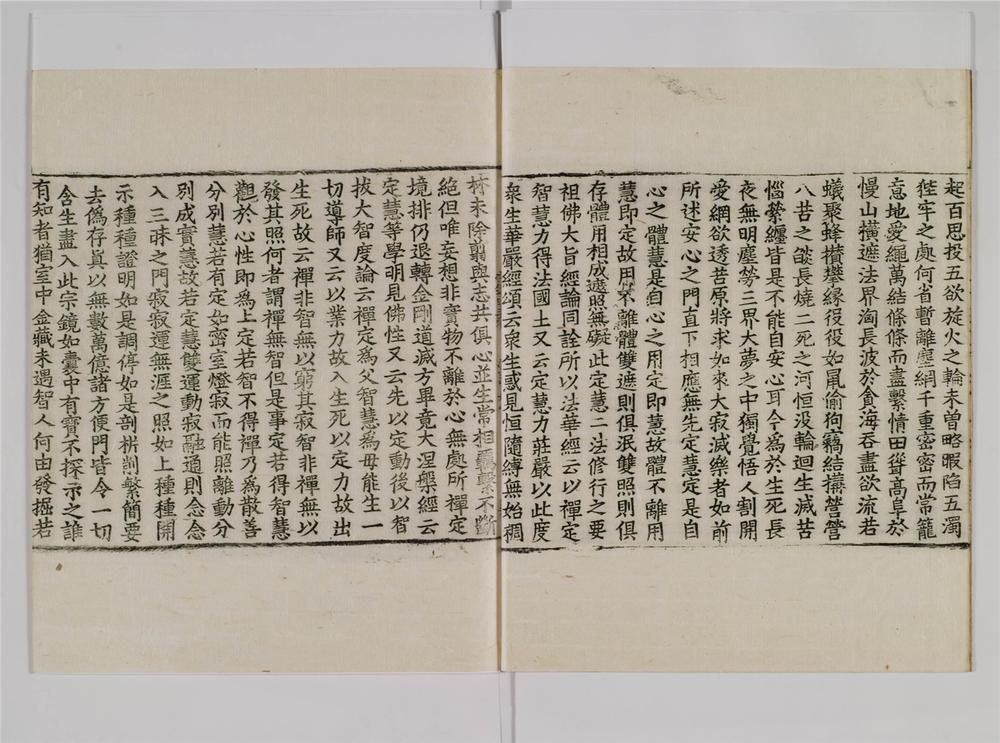 起百思投五欲旋火之輪未曽略暇陷五濁
狴牢之處何省暫離塵網千重密密而常籠
意地愛繩萬結條條而盡繫情田聳高阜於
慢山橫遮法界淘長波於貪海吞盡欲流若
蟻聚蜂攅攀緣役役如鼠偷狗竊結搆營營
八苦之燄長燒二死之河恒没輪迴生滅苦
惱縈纏皆是不能自安心耳今為於生死長
夜無明塵勞三界大夢之中獨覺悟人割開
愛網欲透苦原將求如來大寂滅樂者如前
所述安心之門直下相應無先定慧定是自
心之體慧是自心之用定即慧故體不離用
慧即定故用不離體雙遮則俱泯雙照則俱
存體用相成遮照無礙此定慧二法修行之要
祖佛大旨經論同詮所以法華經云以禪定
智慧力得法國土又云定慧力莊嚴以此度
衆生華嚴經頌云衆生惑見恒隨縛無始稠
林未除翦與志共俱心並生常相羈繫不斷
絕但唯妄想非實物不離於心無處所禪定
境排仍退轉金剛道滅方畢竟大涅槃經云
定慧等學明見佛性又云先以定動後以智
拔大智度論云禪定為父智慧為母能生一
切導師又云以業力故入生死以定力故出
生死故云禪非智無以窮其寂智非禪無以
發其照何者謂禪無智但是事定若得智慧
觀於心性即為上定若智不得禪乃為散善
分別慧若有定如密室燈寂而能照離動分
別成實慧故若定慧雙運動寂融通則念念
入三昧之門寂寂運無涯之照如上種種開
示種種證明如是調停如是剖析削繁簡要
去偽存眞以無數萬億諸方便門皆令一切
含生盡入此宗鏡如囊中有寶不探示之誰
有知者猶室中金藏未遇智人何由發掘若